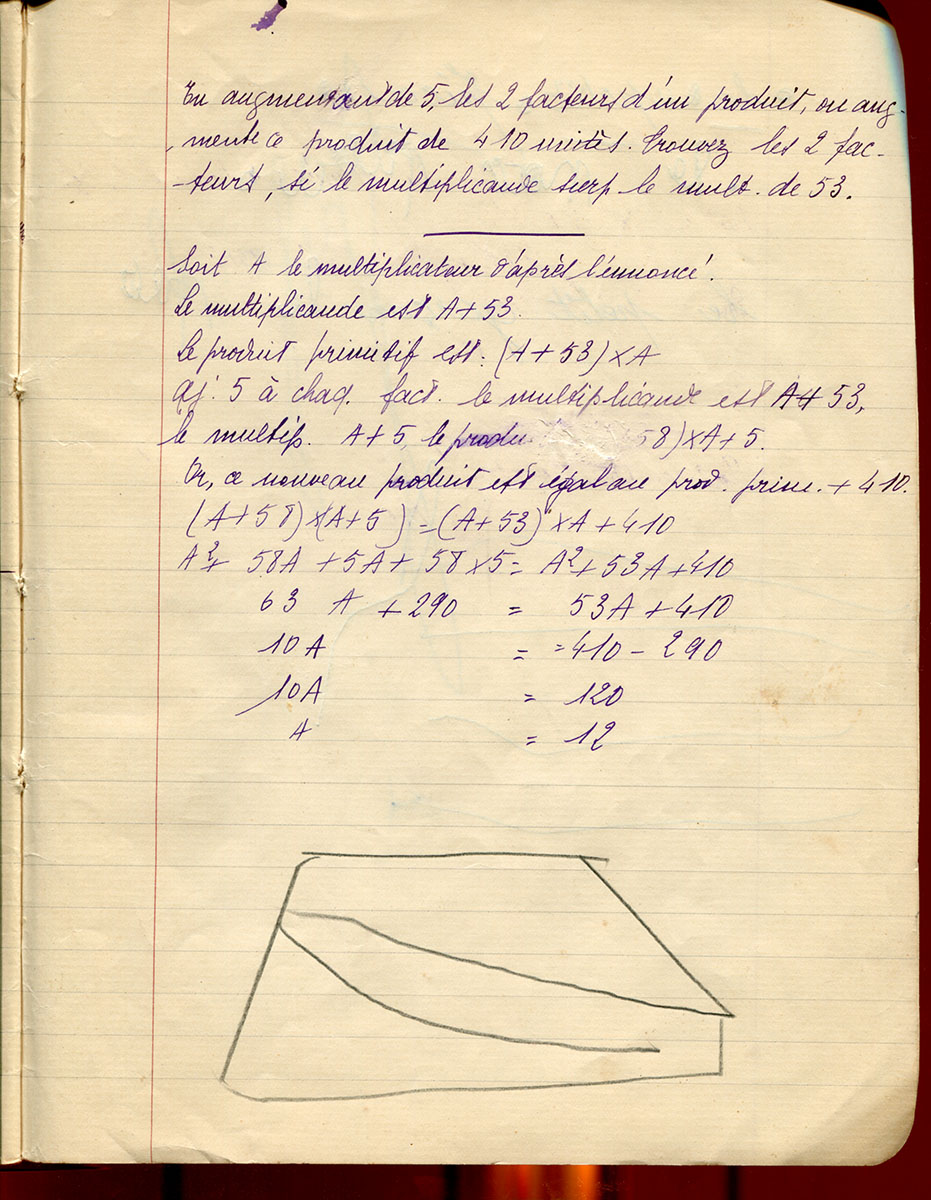 En augmentant de 5, les 2 facteurs d'un produit, on aug-
mente ce produit de 410 unités. Trouvez les 2 fac-
-teurs, si le multiplicande surp. le mult. de 53.
Soit A le multiplicateur d'après l'énnoncé.
Le multiplicande est A+53.
Le produit primitif est: (A+53)×A
Aj. 5 à chaq. fact. le multiplicande est A+53,
le multip. A+5, le produ 58)×A+5.
Or, ce nouveau produit est égal au prod. prim. + 410.
(A+58)×(A+5) = (A+53)×A+410
A²+ 58A+5A+ 58×5= A²+53A+410
63 A +290 = 53A+410
10A = =410-290
10A = 120
A = 12